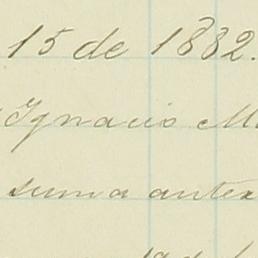 15 de 1882.
Ignacio M
suma anter